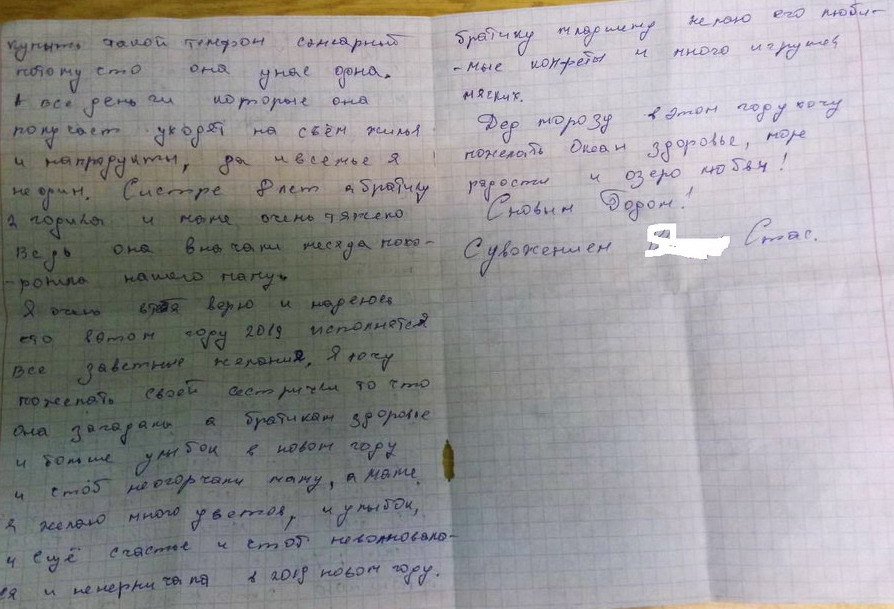 купить такой телефон сенсарный
потому сто она унас одна.
А все деньги которые она
получает уходят на сьём жилья
и напрадукты, да ивсемье я
не один. Систре 8 лет абратику
2 годика и маме очень тяжело
Ведь она вначали месяца похо-
-ронила нашего папу.
Я очень верю и надеюсь
сто вэтом году 2019 исполнятся
Все заветные желания, Я хочу
пожелать своей сестрички то что
она загадала а братикам здоровье
и больше улыбок в новом году
и стоб неогорчали маму, а маме
я желаю много цветов, и улыбок,
и ещё счастье и стоб неволновала-
ся и ненерничала в 2019 новом году.
братику младшему желаю его люби-
-мые конфеты и много игрушек
мяских.
Дед морозу вэтом году хочу
пожелать Океан здоровье, море
радости и озеро любви!
Сновым Годом!
Суважением Стас.